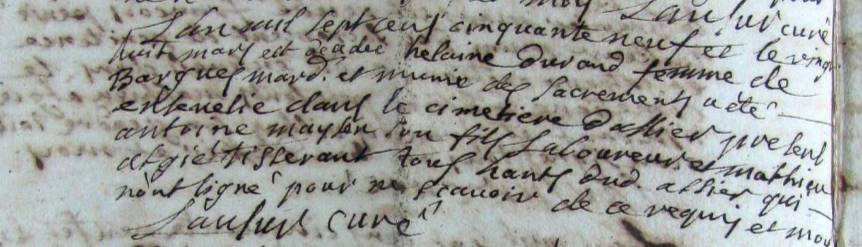 Lausur curé
Lan mil sept cens cinquante neuf et le vingt
huit mars est décédée helaine durand femme de
Barques mard. et munie des sacrements a été
ensevelie dans le cimetiere d'allier present
antoine son fils laboureur et mathieu
tisserant tous hants dud. allier qui
n'ont signé pour ne scavoir de ce requis et moy
Lausur curé